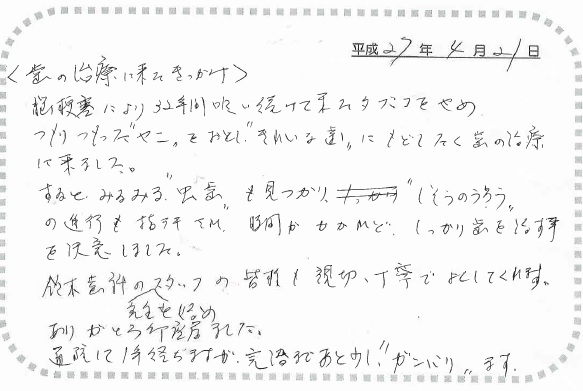 平成27年4月21日
<歯の治療に来たきっかけ>
脳梗塞により32年間吸い続けて来たタバコをやめ
ついつい"ヤニ"をおとし"きれいな歯"にもどしたく歯の治療
に来ました。
するとみるみる"虫歯"も見つかり、"しそうのうろう"
の進行も指摘され 時間がかかれど、しっかり歯を治す事
を決意しました。
鈴木歯科のスタッフの皆様も親切、丁寧でよくしてくれます。
先生を始め
ありがとう御座居ました。
通院して1年経ちますが、完治まであと少し"ガンバリ"ます。